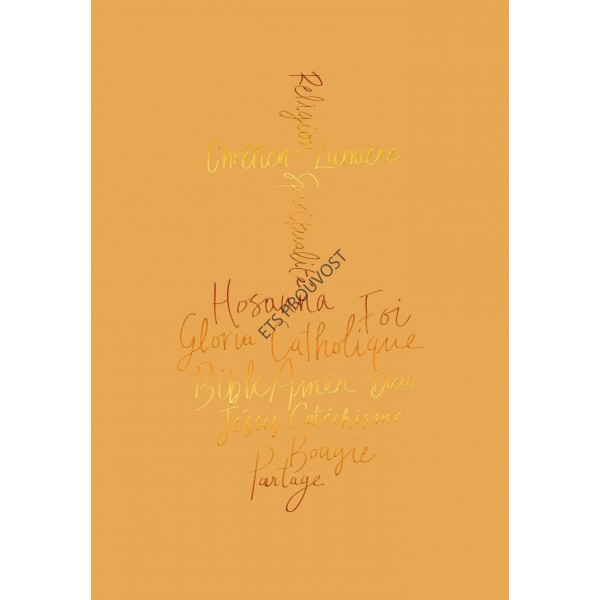 Religion
Chrétien Lumière
Spiritualité
Hosanna Foi
ETS PROUVOST
Gloria Catholique
Bible Amen
Jésus Catéchisme
Bougie
Partage